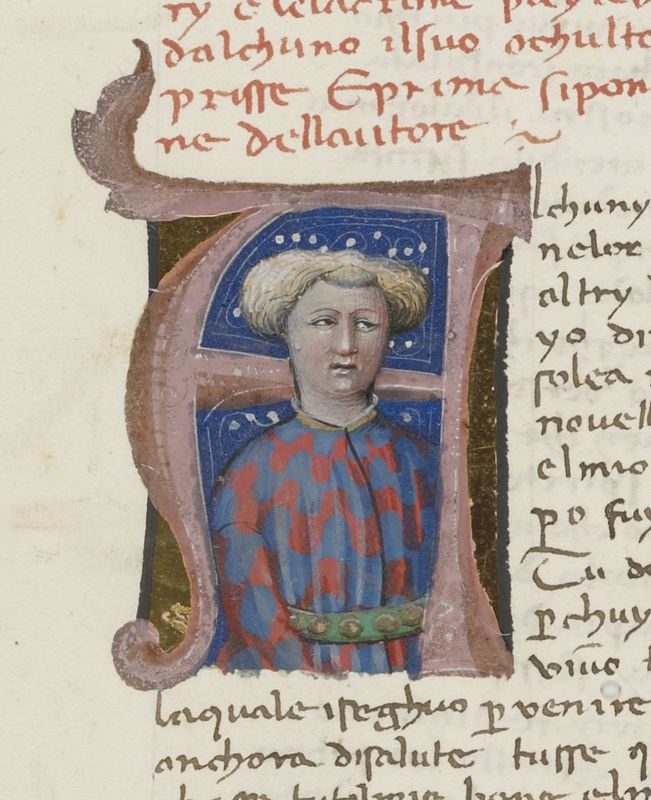 dalchuno ilsuo ochulto
prisse Eprima sipon
ne dellautore
lchuny
nelor
altry
yo di
solea
novell
elmio
ꝑo fuy
Tu de
ꝑchuy
laquale iseghuo ꝑ venire
anchora disalute fusse q